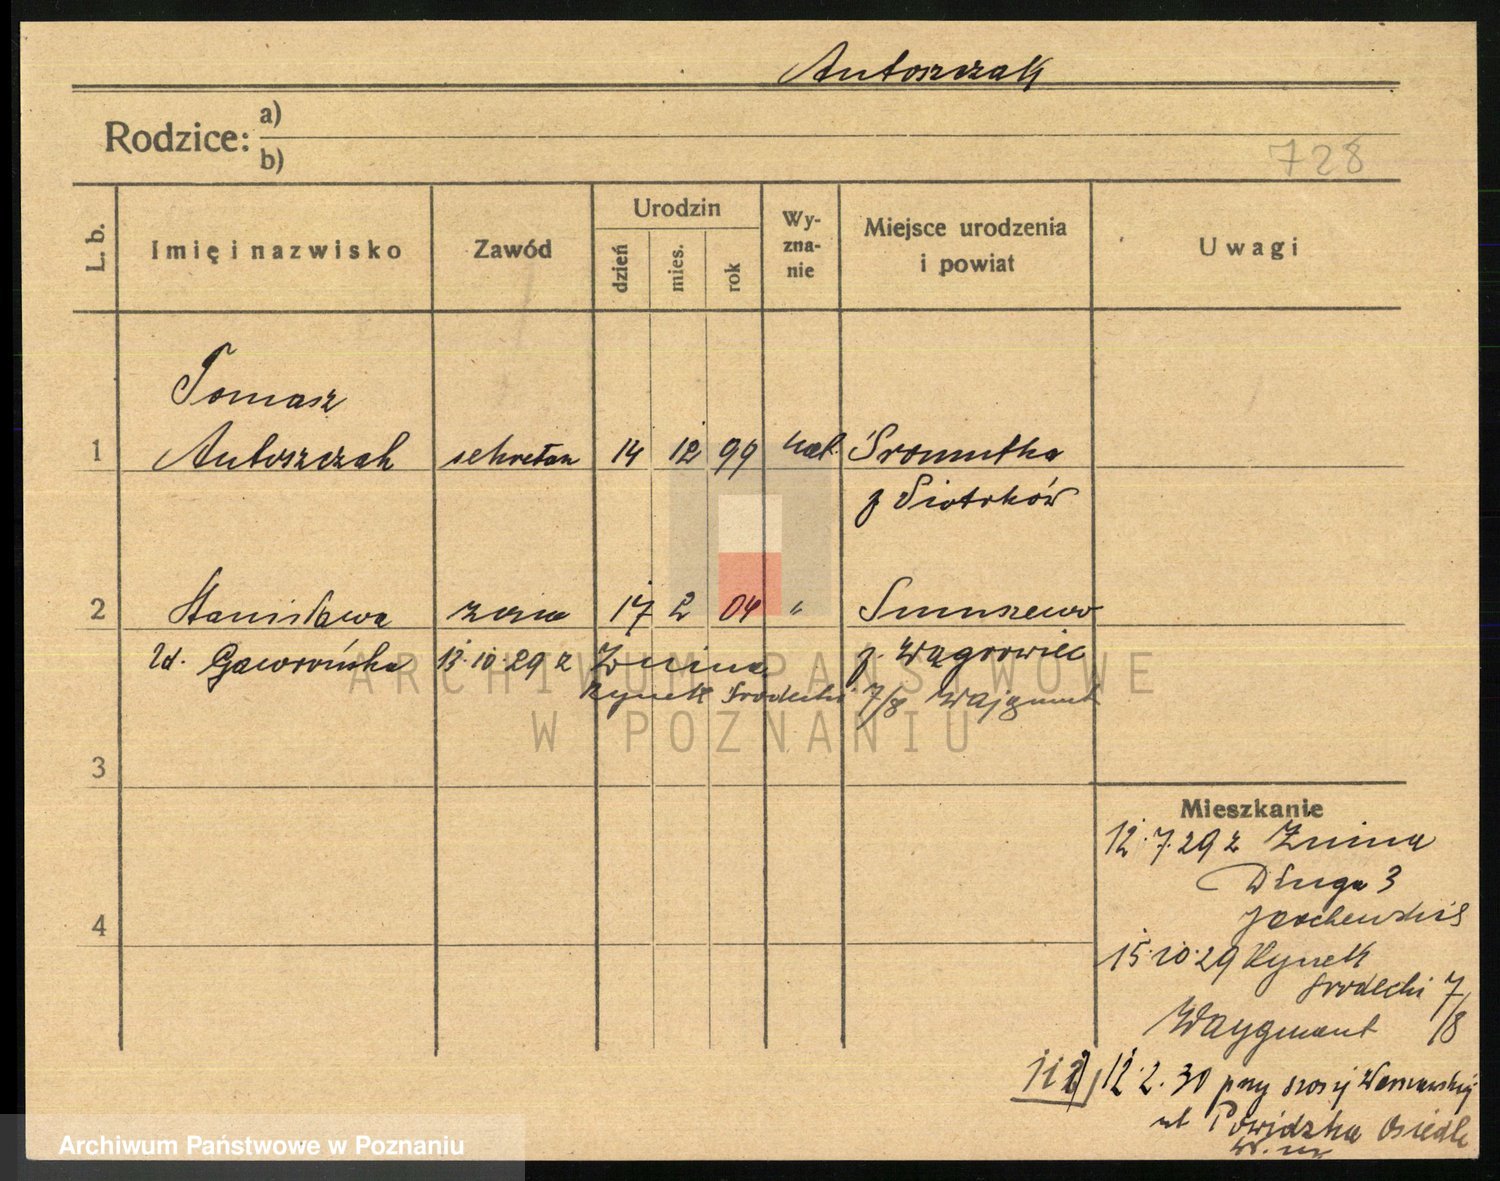 Antoszczak
Rodzice: a)
b)
728
L. b.
Imię i nazwisko
Zawód
Urodzin
dzień
mies.
rok
Wy-
zna-
nie
Miejsce urodzenia
i powiat
Uwagi
Tomasz
1 Antoszczak sekretarz 14 12 99 kat. Sromutka
p Piotrków
2 Stanisława żona 17 2 04 " Smuszewo
zd. Gaworońska 13.10.29 z Żnina p. Wągrowiec
Rynek Środecki 7/8 Wajgmant
ARCHIWUM PAŃSTWOWE
W POZNANIU
3
Mieszkanie
12.7.29 z Żnina
Długa 3
4
15.10.29 Rynek
Środecki 7/8
Waygmant
112 12.2.30 przy szosy Warszawskiej
ul Powidzka Osiedle
Archiwum Państwowe w Poznaniu